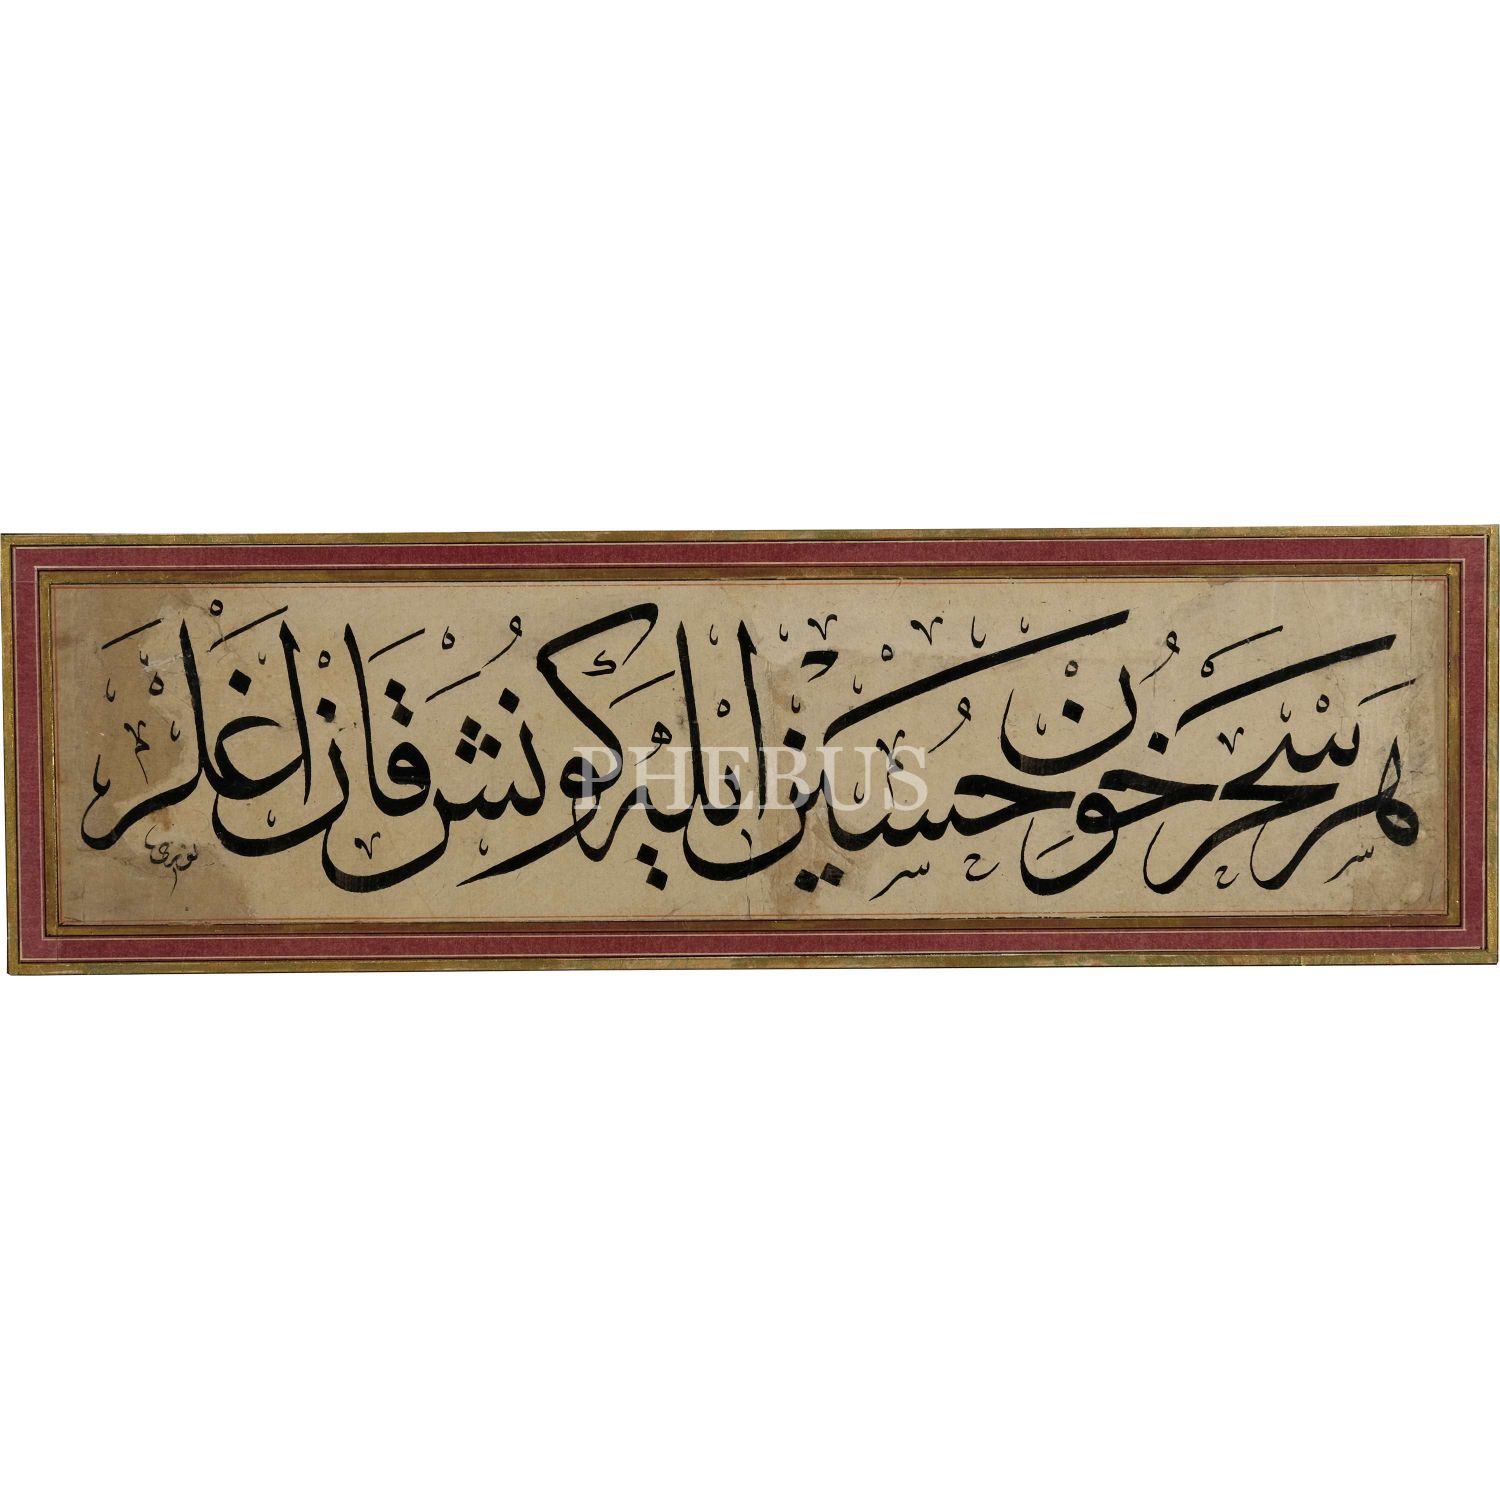 هر سحر خون حسين ايله كونش قان اغلر
PHEBUS